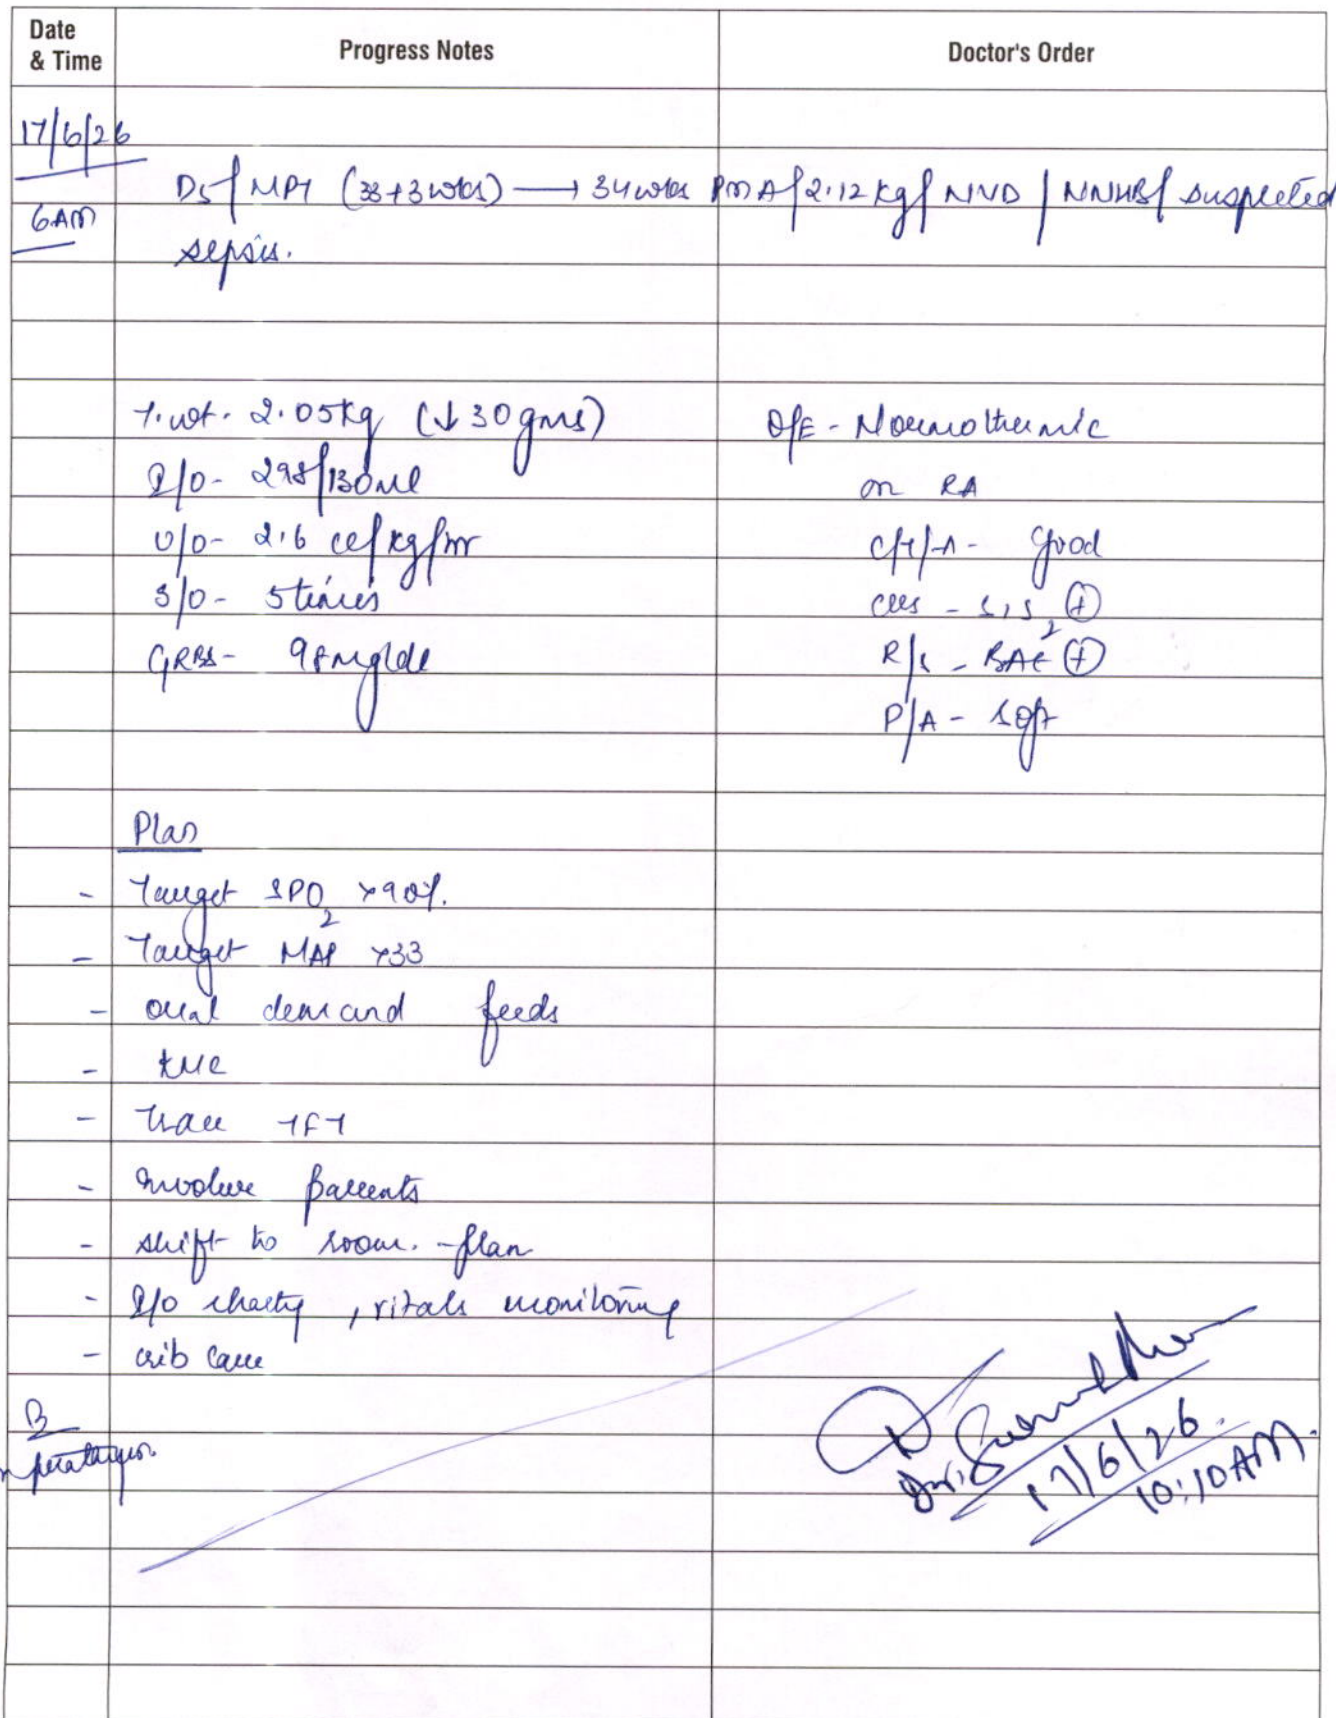 Date & Time
Progress Notes
Doctor's Order
17/6/26
6AM
D5/ MPT (33+3wks) → 34wks PMA/ 2.12 kg/ NVD / NNHB/ suspected
sepsis.
T.wt. 2.05kg (↓30gms)
I/O- 298/130ml
U/O- 2.6 cc/kg/hr
S/O- 5times
GRBS- 98mg/dl
O/E - Normothermic
on RA
C/T/A - Good
CVS - S1S2 (+)
R/S - BAE (+)
P/A - soft
Plan
- Target SPO2 >90%.
- Target MAP >33
- oral demand feeds
- KMC
- Trace TFT
- Involve parents
- shift to room. - plan
- I/O charting, vitals monitoring
- crib care
Dr.
17/6/26.
10:10AM.